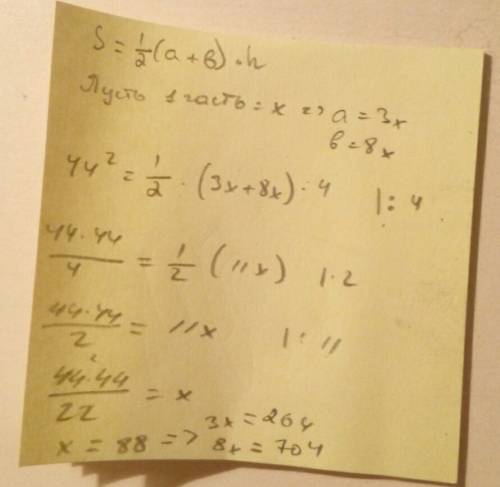 S = 1/2 (a + в) · h
Пусть 1 часть = x => a = 3x
в = 8x
44² = 1/2 · (3x + 8x) · 4 |: 4
44·44/4 = 1/2 (11x) |·2
44·44/2 = 11x |: 11
44²·44/22 = x
x = 88 => 3x = 264
8x = 704